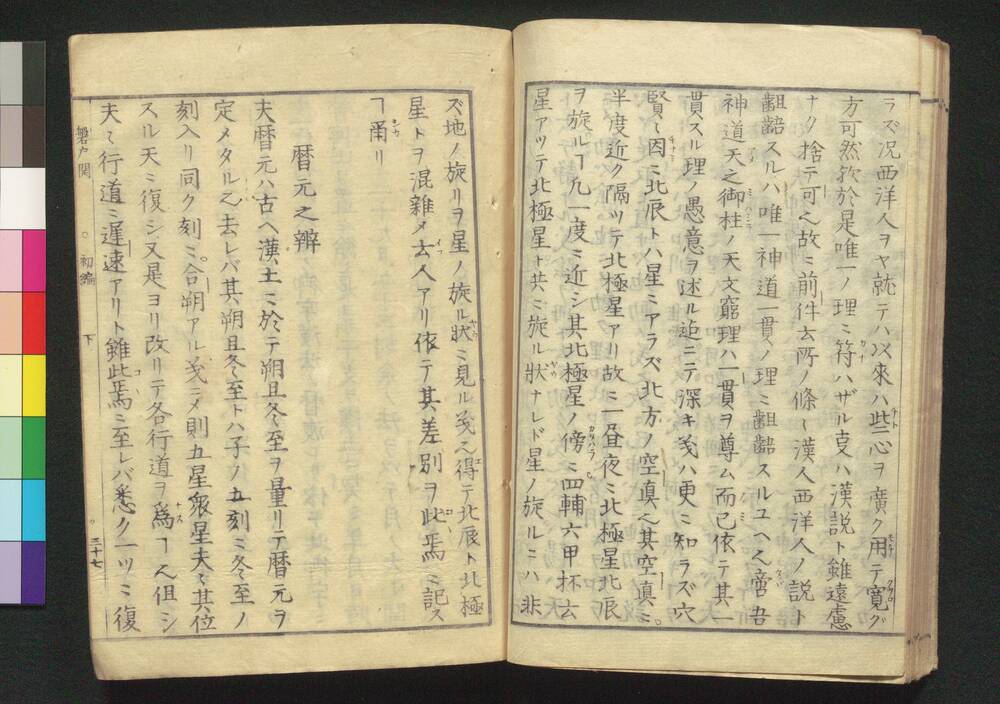 ラズ况西洋人ヲヤ就テハ以來ハ些心ヲ廣ク用テ寛グ
方可然欤於是唯一ノ理ミ符ハザル支ハ漢説ト雖遠慮
ナク捨テ可之故ミ前件去所ノ條〻漢人西洋人ノ説ト
齟齬スルハ唯一神道一貫ノ理ミ齟齬スルユヘ之啻吾
神道天之御柱ノ天文窮理ハ一貫ヲ尊ム而已依テ其一
貫スル理ノ愚意ヲ述ル迠ニテ深キ義ハ更ミ知ラズ穴
賢〻因ミ北辰トハ星ミアラズ北方ノ空真之其空真ミ
半度近ク隔ツテ北極星アリ故ミ一昼夜ミ北極星北辰
ヲ旋ルヿ凡一度ミ近シ其北極星ノ傍ミ四輔六甲抔去
星アツテ北極星ト共ミ旋ル状ナレド星ノ旋ルミハ非
ズ地ノ旋リヲ星ノ旋ル状ミ見ル義之得テ北辰ト北極
星トヲ混雑メ去人アリ依テ其差別ヲ此焉ミ記ス
ヿ爾リ
暦元之辨
夫暦元ハ古ヘ漢土ミ於テ朔旦冬至ヲ量リテ暦元ヲ
定メタル之去レバ其朔旦冬至トハ子ノ五刻ミ冬至ノ
刻入リ同ク刻ミ合朔アル義ニメ則五星衆星夫〻其位
スル天ミ復シ又是ヨリ改リテ各行道ヲ爲ヿ之但シ
夫〻行道ミ遅速アリト雖此焉ミ至レバ悉ク一ツミ復
磐戸関
○初編
下
○三十七